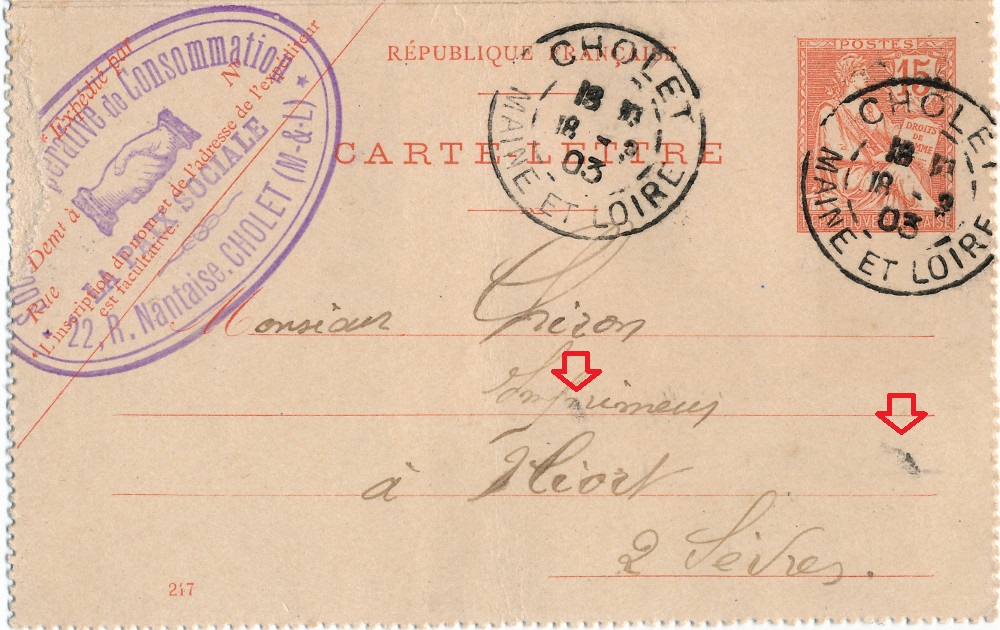 RÉPUBLIQUE FRANÇAISE
CARTE-LETTRE
POSTES
15
DROITS DE
CHOLET
18
18 - 3
03
MAINE ET LOIRE
CHOLET
18
18 - 3
03
MAINE ET LOIRE
Expédié par
N°
Rue
Demt à
L'inscription du nom et de l'adresse de l'expéditeur
est facultative.
de Consommation
LA PAIX SOCIALE
22, R. Nantaise. CHOLET (M-&-L)
Monsieur Chiron
Imprimeur
à Niort
2 Sèvres.
247